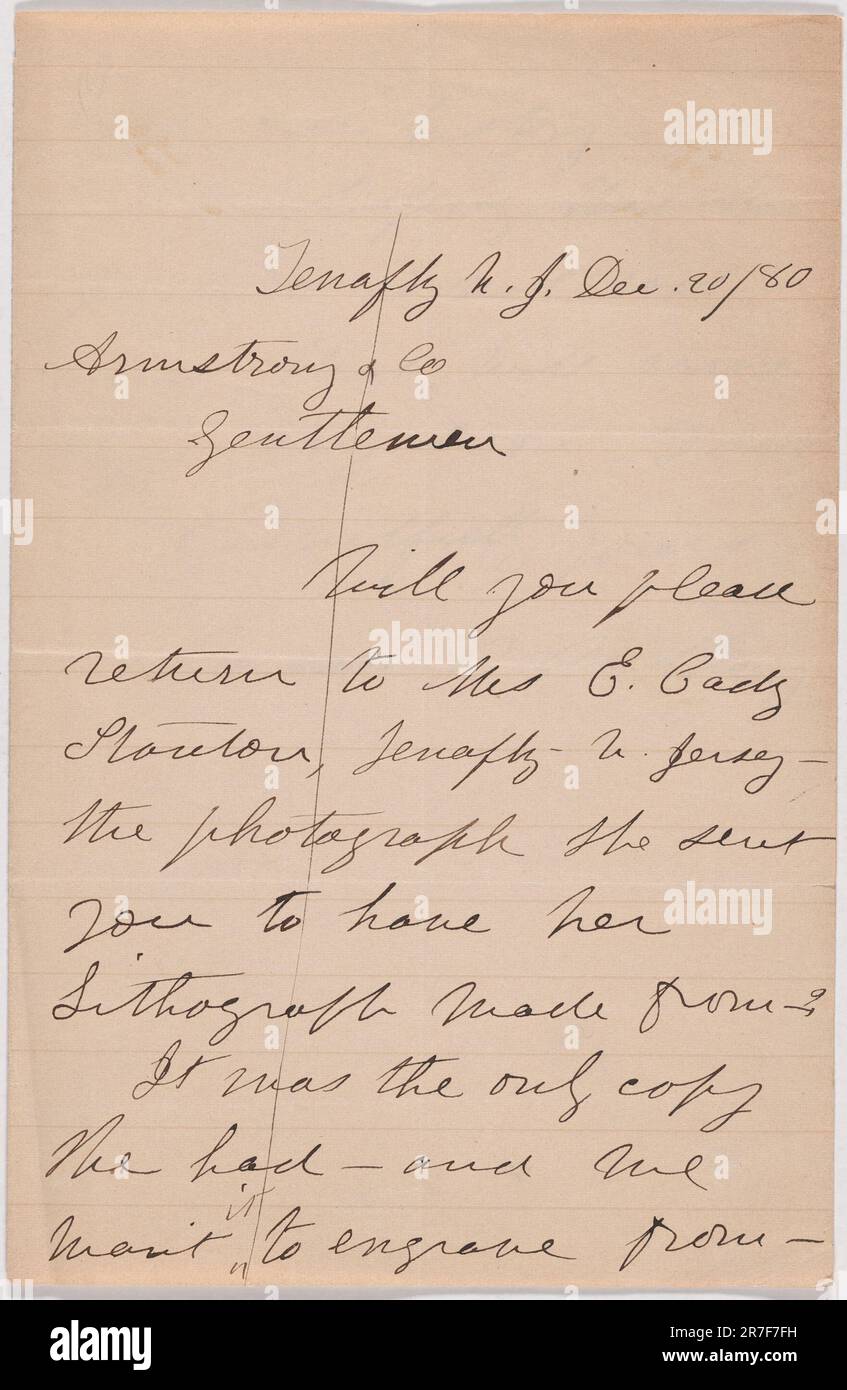 Tenafly N. J. Dec. 20/80
Armstrong & Co
Gentlemen
Will you please
return to Mrs E. Cady
Stanton, Tenafly - N. Jersey -
the photograph she sent
you to have her
Lithograph made from - ?
It was the only copy
She had - and we
want it to engrave from -
alamy
Image ID: 2R7F7FH
www.alamy.com